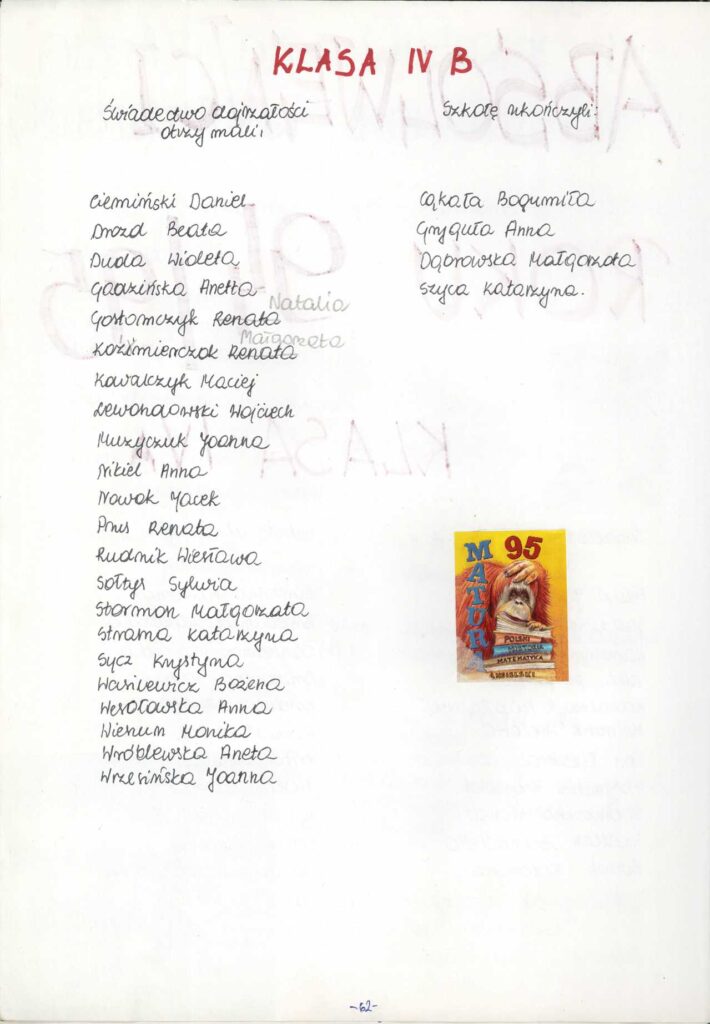 KLASA IV B
Świadectwo dojrzałości
otrzymali:
Ciemiński Daniel
Drozd Beata
Duda Wioleta
Gadzińska Anetta
Natalia
Gostomczyk Renata
Małgorzata
Kaźimierczak Renata
Kowalczyk Maciej
Lewandowski Wojciech
Muzyczuk Joanna
Nikiel Anna
Nowak Jacek
Renata
Rudnik Wiesława
Sołtys Sylwia
Stormon Małgorzata
Strama Katarzyna
Sycz Krystyna
Wasilewicz Bożena
Wesołowska Anna
Monika
Wróblewska Aneta
Wrzesińska Joanna
Szkołę ukończyli:
Cąkała Bogumiła
Gryguła Anna
Dąbrowska Małgorzata
Szyca Katarzyna.
MATURA 95
POLSKI
HISTORIA
MATEMATYKA
-62-